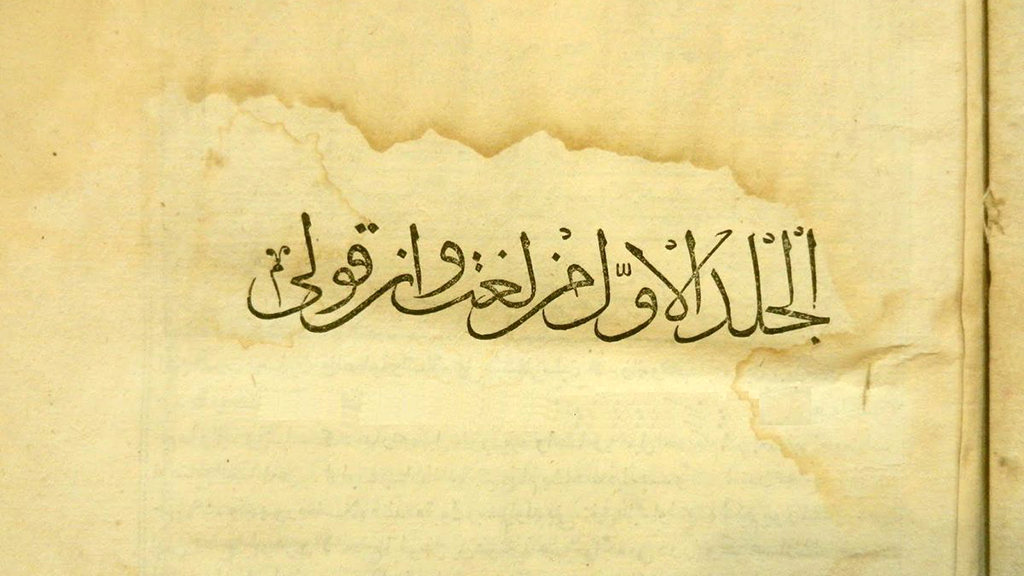 الجلد الاوّل من لغت وانقولى